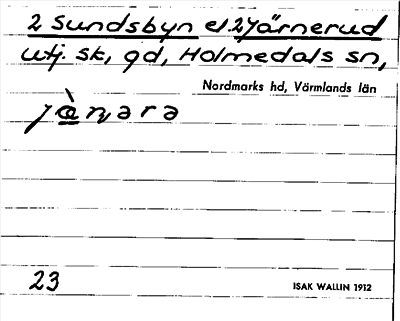 2 Sundsbyn el 2 Järnerud
utj. sk, gd, Holmedals sn,
Nordmarks hd, Värmlands län
23
ISAK WALLIN 1912